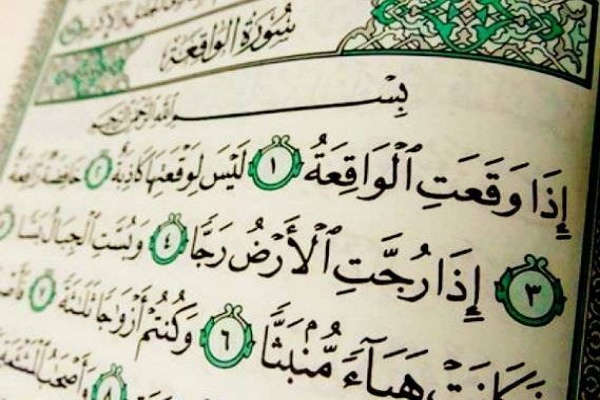 سُورَةُ الْوَاقِعَة
بِسْمِ اللَّهِ الرَّحْمَٰنِ الرَّحِيمِ
إِذَا وَقَعَتِ ٱلْوَاقِعَةُ ١ لَيْسَ لِوَقْعَتِهَا كَاذِبَةٌ ٢ خَافِضَةٌ رَّافِعَةٌ
٣ إِذَا رُجَّتِ ٱلْأَرْضُ رَجًّا ٤ وَبُسَّتِ ٱلْجِبَالُ بَسًّا
فَكَانَتْ هَبَآءً مُّنۢبَثًّا ٦ وَكُنتُمْ أَزْوَٰجًا ثَلَٰثَةً ٧
٨ وَأَصْحَٰبُ